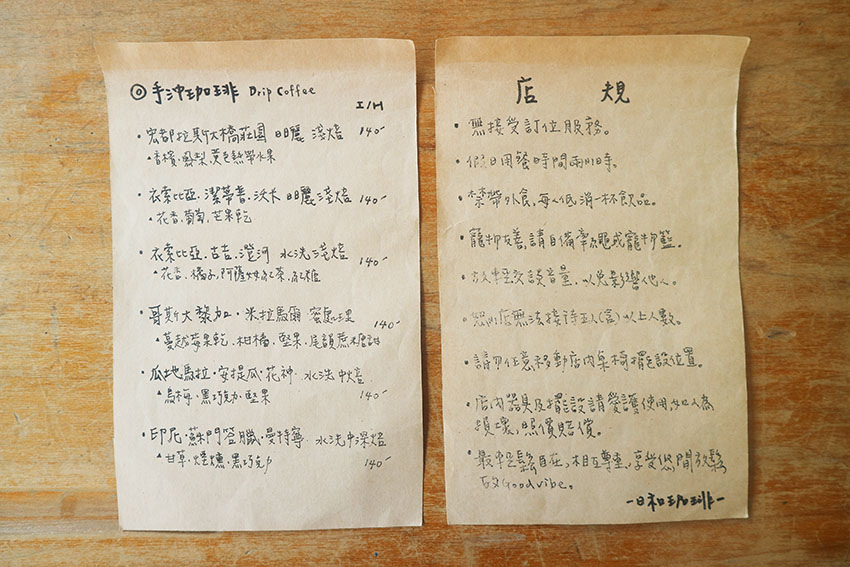 ◎手沖珈琲 Drip Coffee
I/H
•宏都拉斯大橋莊園 日曬 淺焙 140-
▲香檳.鳳梨.黃色熱帶水果
•衣索比亞.潔蒂普.沃卡 日曬 淺焙 140-
▲花香.葡萄.芒果乾
•衣索比亞.古吉.澄河 水洗 淺焙 140-
▲花香.橘子.阿薩姆紅茶.
•哥斯大黎加.米拉馬爾 蜜處理 140-
▲蔓越莓果乾.柑橘.堅果.尾韻蔗糖甜
•瓜地馬拉.安提瓜.花神.水洗 中焙 140-
▲烏梅.黑巧克力.堅果
•印尼.蘇門答臘.曼特寧 水洗 中深焙 140-
▲甘草.煙燻.黑巧克力
店 規
•無接受訂位服務。
•假日用餐時間兩小時。
•禁帶外食,每人低消一杯飲品。
•寵物友善,請自備或寵物籃。
•放輕交談音量,以免影響他人。
•恕小店無法接待五人(含)以上人數。
•請勿任意移動店內桌椅擺設位置。
•店內器具及擺設請愛護使用,如人為
損壞,照價賠償。
•最輕鬆自在,相互尊重,享受悠閒放鬆
的Good vibe。
-日和珈琲-